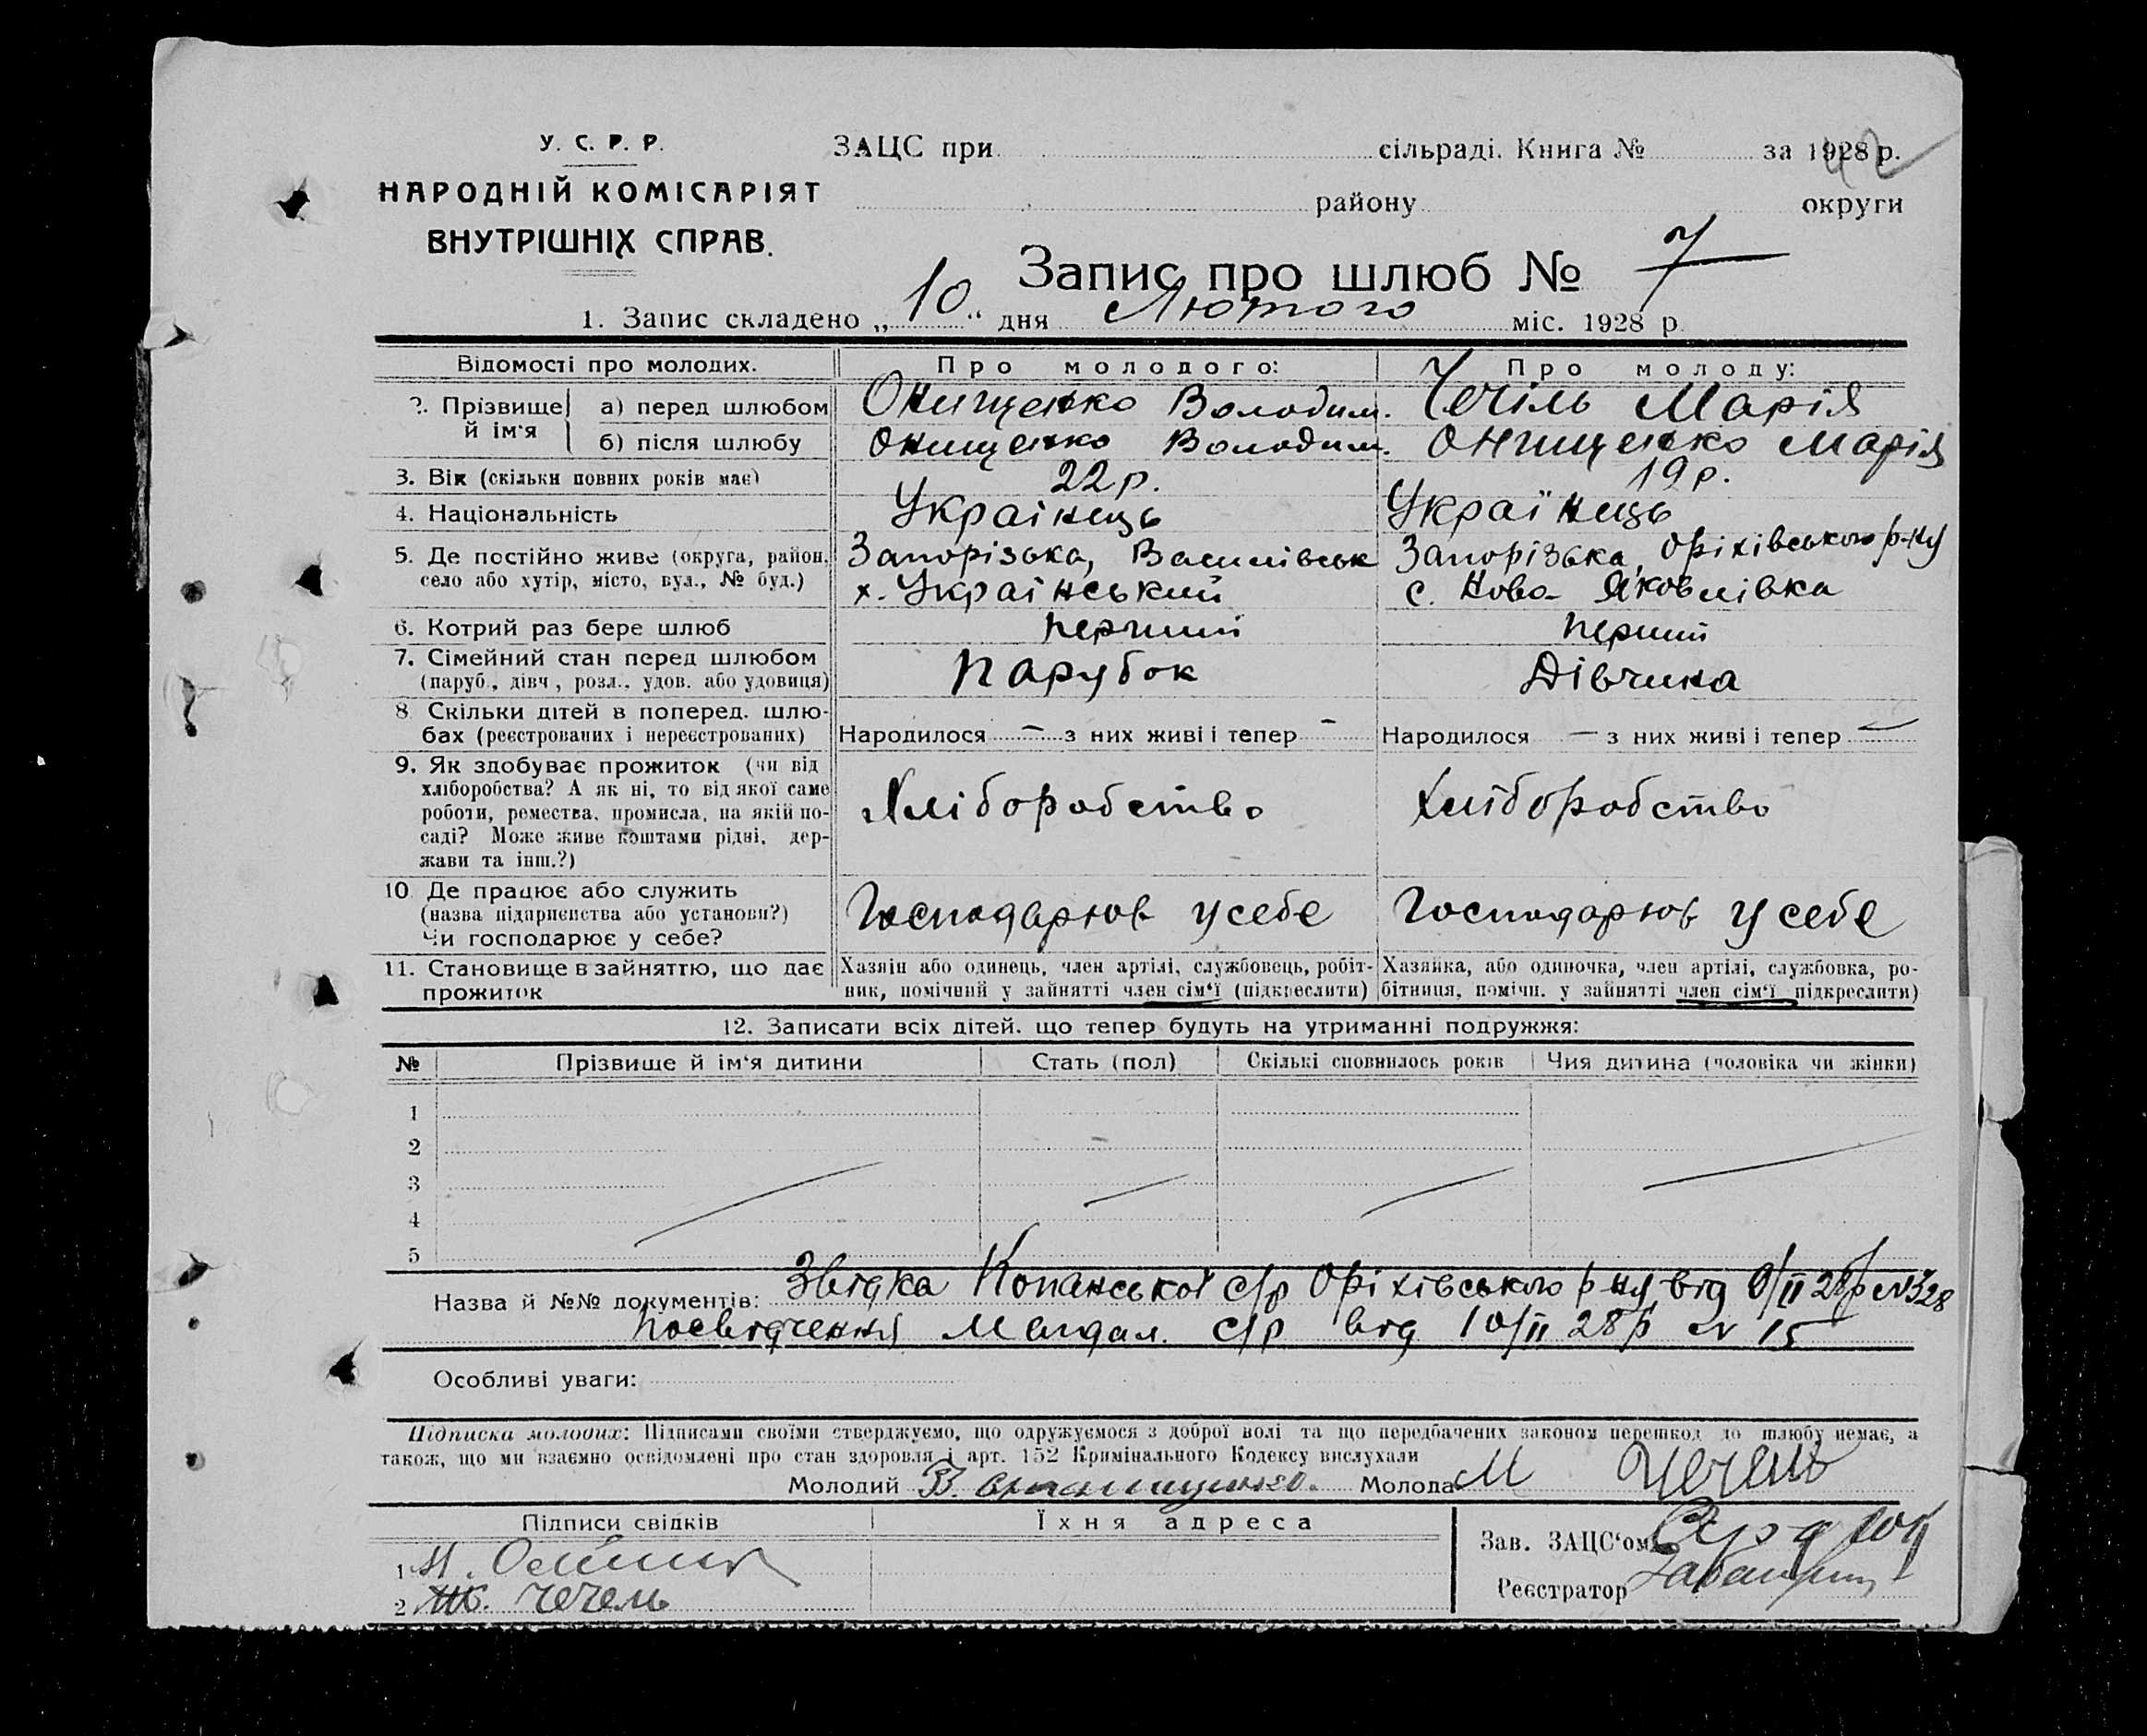 У. С. Р. Р.
НАРОДНІЙ КОМІСАРІЯТ
ВНУТРІШНІХ СПРАВ.
ЗАЦС при сільраді. Книга № за 1928 р.
району округи
Запис про шлюб № 7
1. Запис складено „10“ дня Лютого міс. 1928 р
Відомості про молодих. Про молодого: Про молоду:
2. Прізвище й ім'я а) перед шлюбом Онищенко Володим. Чечіль Марія
б) після шлюбу Онищенко Володим. Онищенко Марія
3. Вік (скільки повних років має) 22 р. 19 р.
4. Національність Українець Українець
5. Де постійно живе (округа, район, Запорізька, Василівськ Запорізька, Оріхівського р-ну
село або хутір, місто, вул., № буд.) х. Український с. Ново-Яковлівка
6. Котрий раз бере шлюб перший перший
7. Сімейний стан перед шлюбом Парубок Дівчина
(паруб., дівч, розл., удов. або удовиця)
8 Скільки дітей в поперед. шлю-
бах (реєстрованих і нереєстрованих) Народилося — з них живі і тепер — Народилося — з них живі і тепер —
9. Як здобуває прожиток (чи від
хліборобства? А як ні, то від якої саме
роботи, ремества, промисла, на якій по- Хліборобство Хліборобство
саді? Може живе коштами рідні, дер-
жави та інш.?)
10 Де працює або служить
(назва підприємства або установи?) Господарюв у себе Господарюв у себе
Чи господарює у себе?
11. Становище в зайняттю, що дає Хазяїн або одинець, член артілі, службовець, робіт- Хазяйка, або одиночка, член артілі, службовка, ро-
прожиток ник, помічний у зайнятті член сім'ї (підкреслити) бітниця, помічн. у зайнятті член сім'ї підкреслити)
12. Записати всіх дітей. що тепер будуть на утриманні подружжя:
№ Прізвище й ім'я дитини Стать (пол) Скількі сповнилось років Чия дитина (чоловіка чи жінки)
1
2
3
4
5
Назва й №№ документів: Звідка Копанської с/р Оріхівського р ну від 9/II 28 р № 328
Посвідчення Магдал. с/р від 10/II 28 р № 15
Особливі уваги:
Підписка молодих: Підписами своїми стверджуємо, що одружуємося з доброї волі та що передбачених законом перешкод до шлюбу немає, а
також, що ми взаємно освідомлені про стан здоровля і арт. 152 Кримінального Кодексу вислухали
Молодий В. Молода М Чечель
Підписи свідків Їхня адреса
Зав. ЗАЦС'ом
1
Реєстратор
2 Чечель